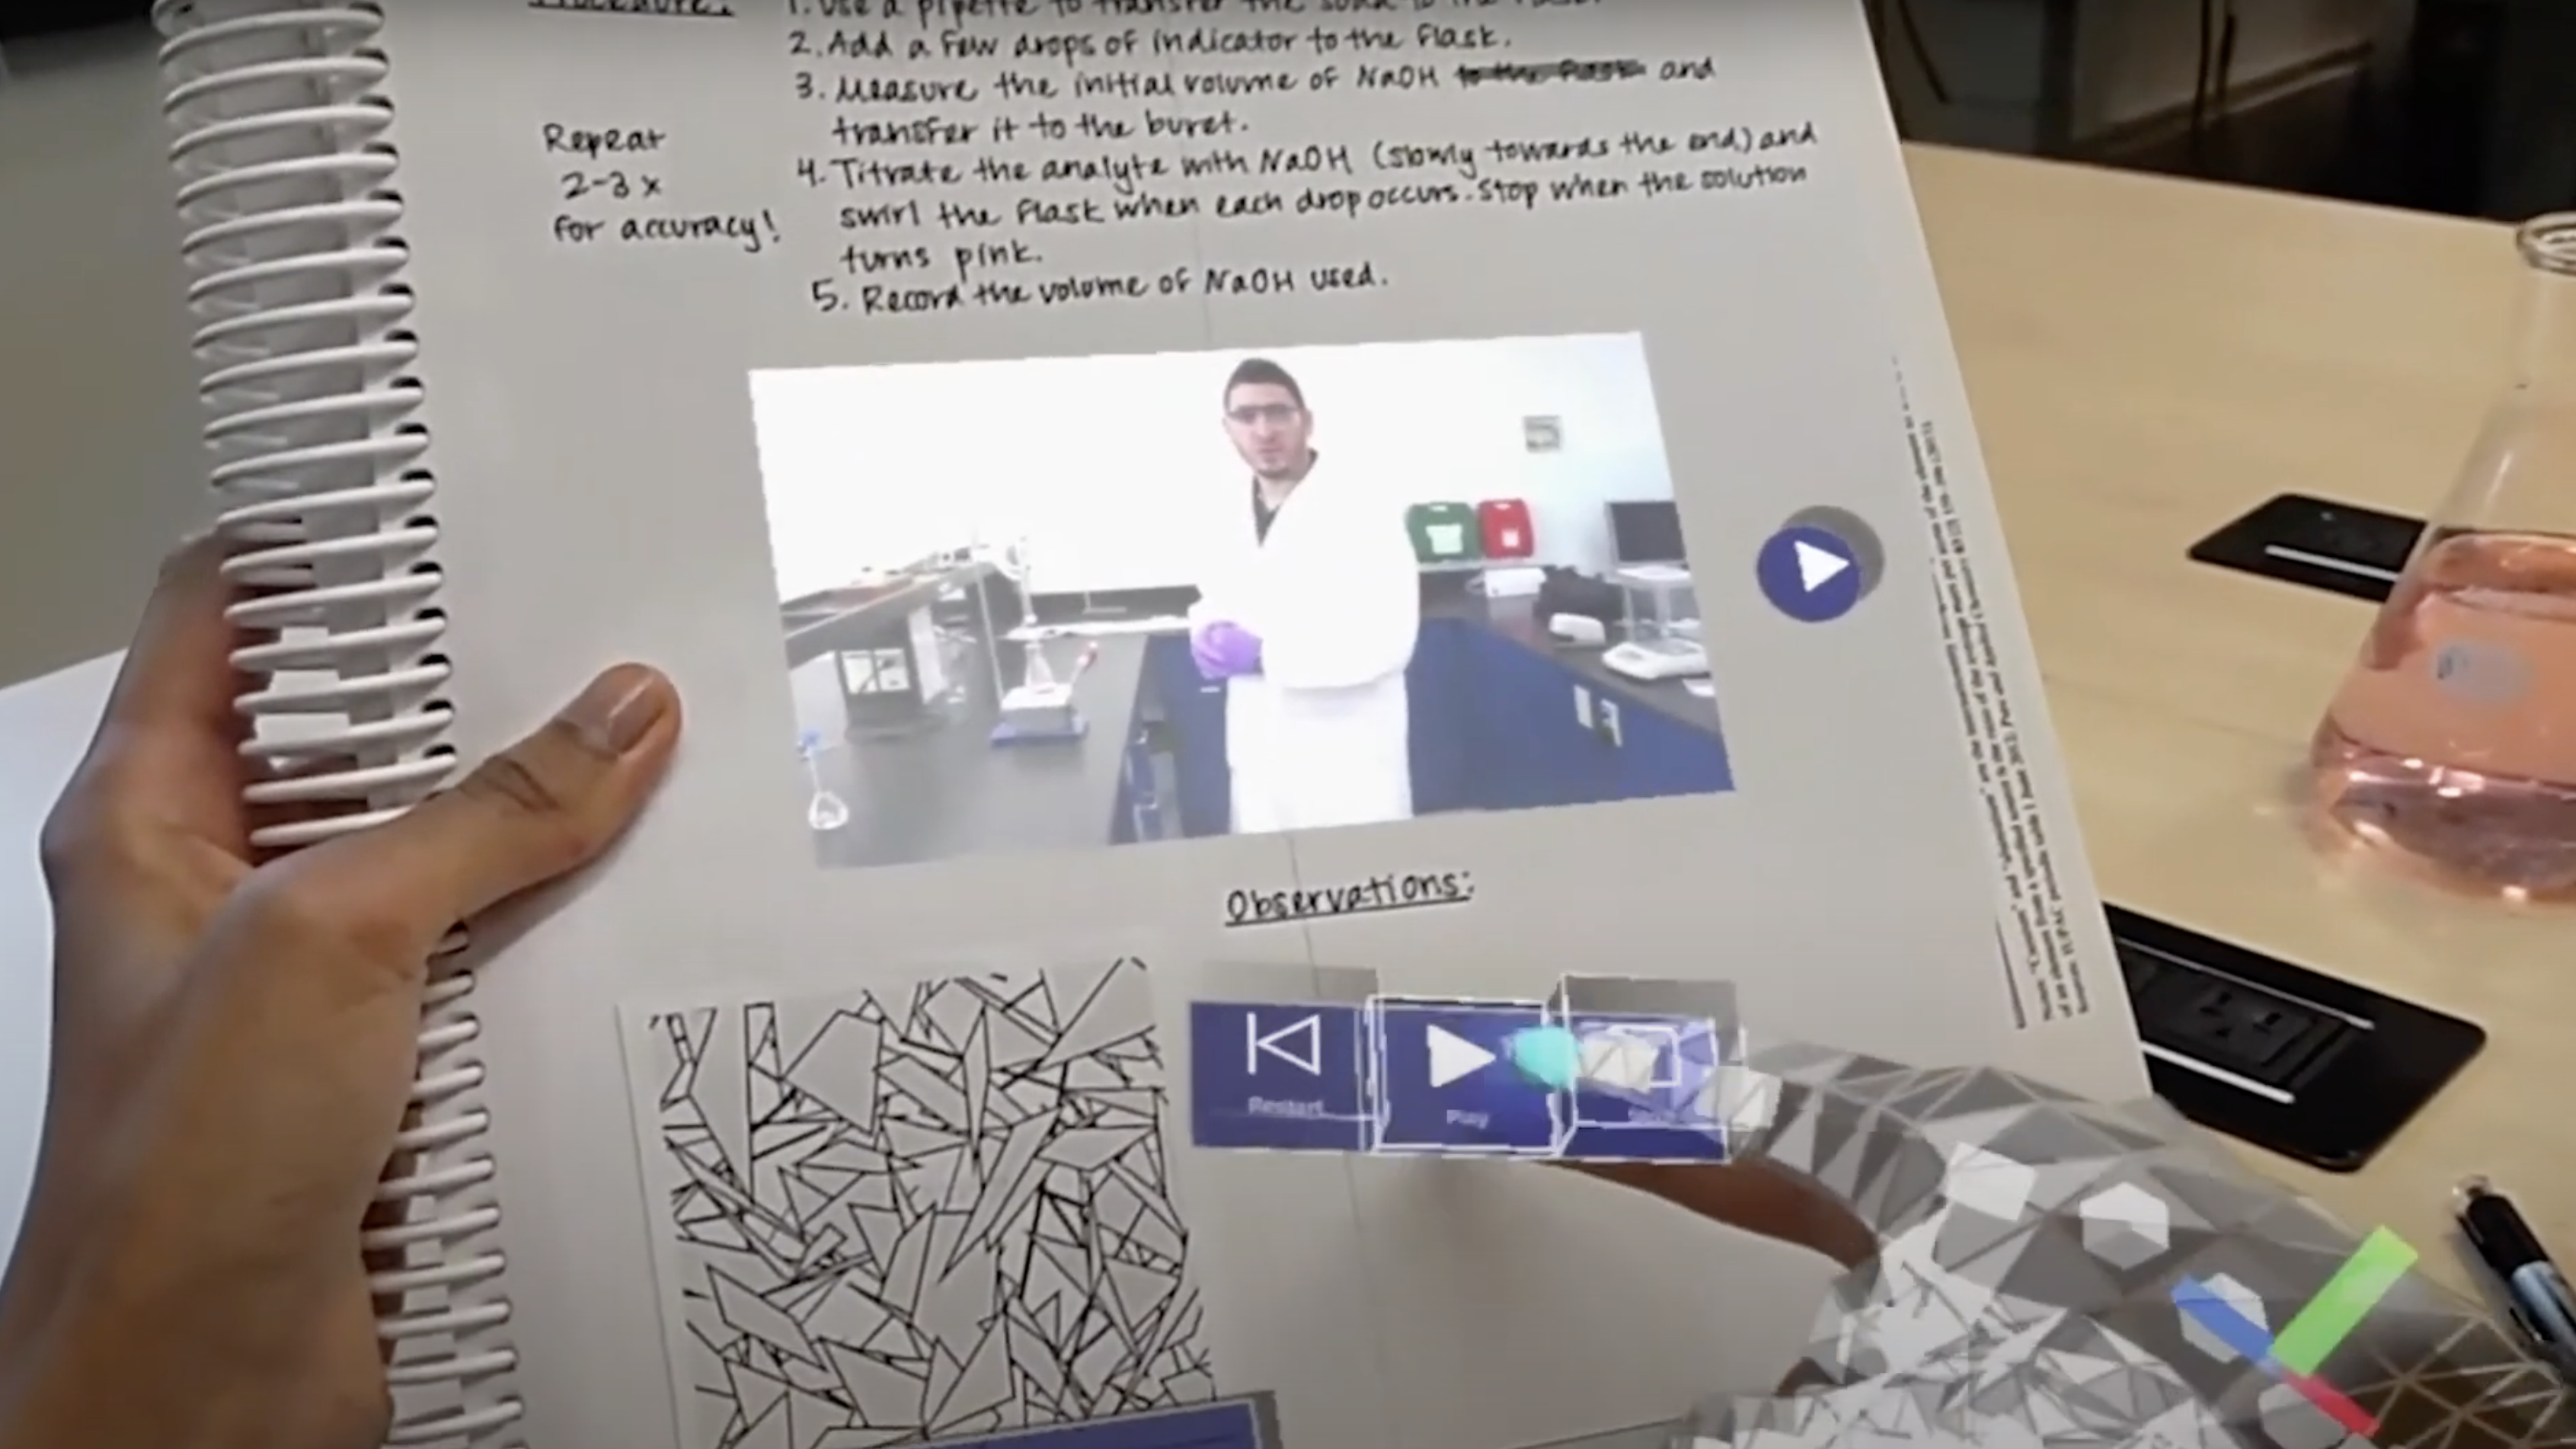 Procedure:
1. Use a pipette to transfer the soda to the flask.
2. Add a few drops of indicator to the flask.
3. Measure the initial volume of NaOH to the flask and
transfer it to the buret.
Repeat
2-3 x
for accuracy!
4. Titrate the analyte with NaOH (slowly towards the end) and
swirl the flask when each drop occurs. Stop when the solution
turns pink.
5. Record the volume of NaOH used.
Observations:
Restart
Play